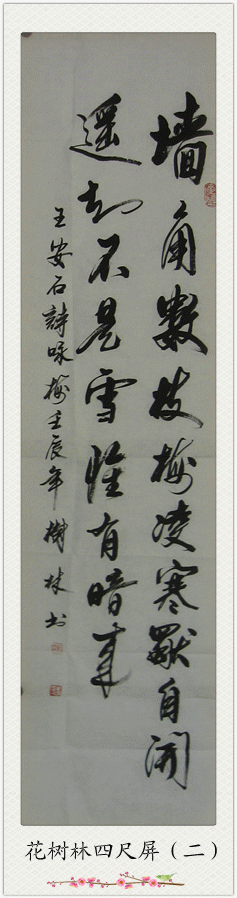 墙角數枝梅凌寒獨自開
遥知不是雪惟有暗来
王安石詩咏梅壬辰年樹林书
花树林四尺屏（二）